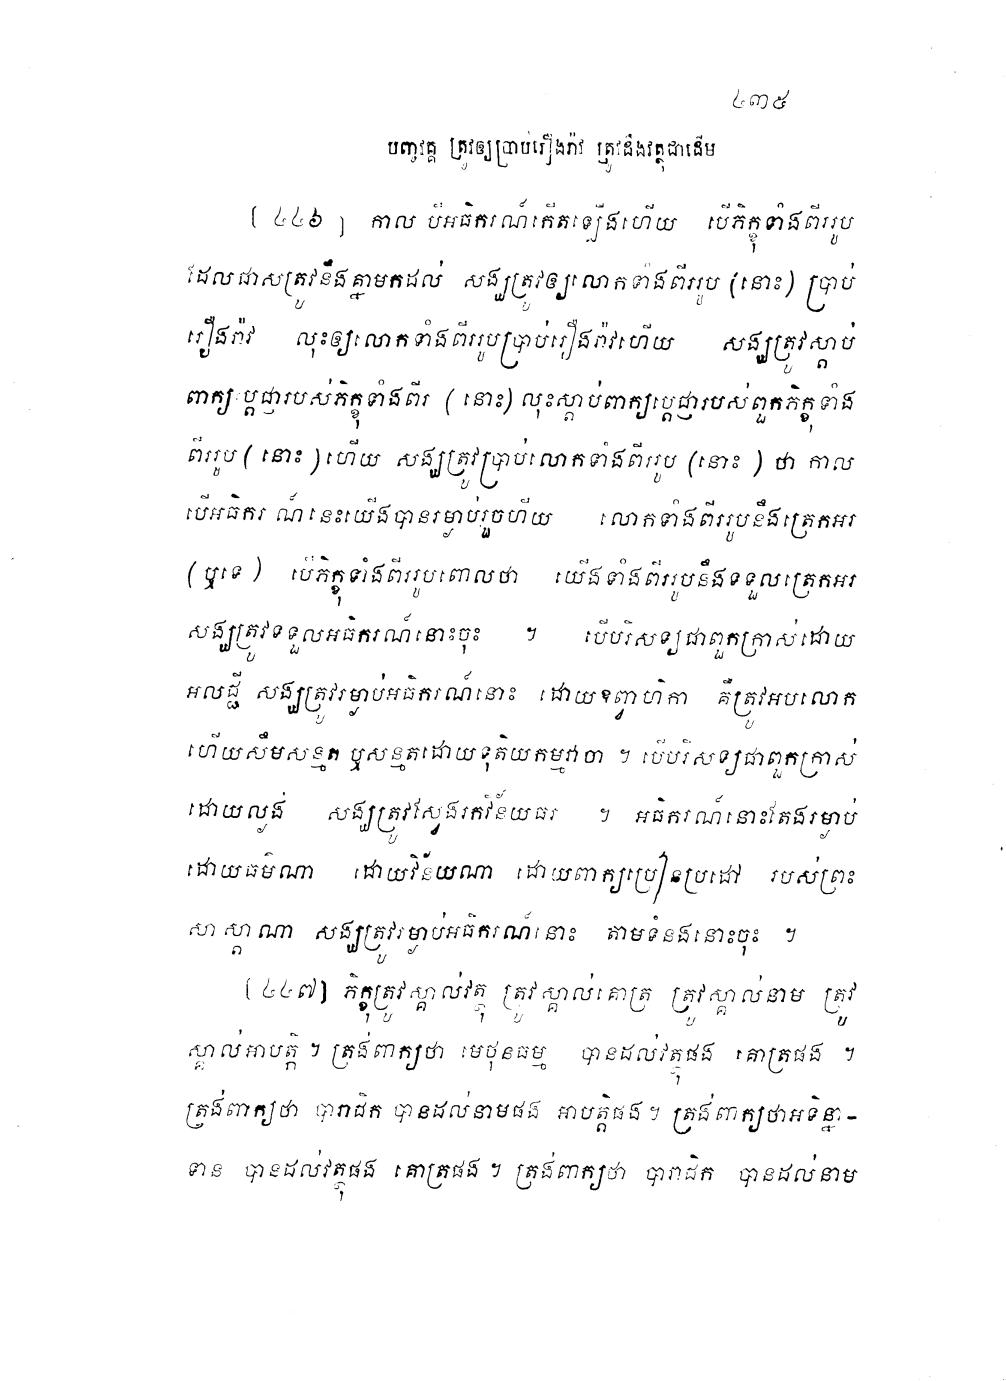 ៤៣៥
បញ្ចវគ្គ ត្រូវឲ្យប្រាប់រឿងរ៉ាវ ត្រូវដឹងវត្ថុជាដើម
[ ៤៤៦ ] កាល បើអធិករណ៍កើតឡើងហើយ បើភិក្ខុទាំងពីររូប
ដែលជាសត្រូវនឹងគ្នាមកដល់ សង្ឃត្រូវឲ្យលោកទាំងពីររូប (នោះ) ប្រាប់
រឿងរ៉ាវ លុះឲ្យលោកទាំងពីររូបប្រាប់រឿងរ៉ាវហើយ សង្ឃត្រូវស្តាប់
ពាក្យប្តេជ្ញារបស់ភិក្ខុទាំងពីរ ( នោះ) លុះស្តាប់ពាក្យប្តេជ្ញារបស់ពួកភិក្ខុទាំង
ពីររូប ( នោះ ) ហើយ សង្ឃត្រូវប្រាប់លោកទាំងពីររូប (នោះ ) ថា កាល
បើអធិករ ណ៍នេះយើងបានរម្ងាប់រួចហើយ លោកទាំងពីររូបនឹងត្រេកអរ
(ឬទេ ) បើភិក្ខុទាំងពីររូបពោលថា យើងទាំងពីររូបនឹងទទួលត្រេកអរ
សង្ឃត្រូវទទួលអធិករណ៍នោះចុះ ។ បើបរិសទ្យជាពួកក្រាស់ដោយ
អលជ្ជី សង្ឃត្រូវរម្ងាប់អធិករណ៍នោះ ដោយឧព្វាហិកា គឺត្រូវអបលោក
ហើយសឹមសន្មត ឬសន្មតដោយទុតិយកម្មវាចា ។ បើបរិសទ្យជាពួកក្រាស់
ដោយល្ងង់ សង្ឃត្រូវស្វែងរកវិន័យធរ ។ អធិករណ៍នោះតែងរម្ងាប់
ដោយធម៌ណា ដោយវិន័យណា ដោយពាក្យប្រៀនប្រដៅ របស់ព្រះ
សាស្តាណា សង្ឃត្រូវរម្ងាប់អធិករណ៍នោះ តាមទំនងនោះចុះ ។
[ ៤៤៧] ភិក្ខុត្រូវស្គាល់វត្ថុ ត្រូវស្គាល់គោត្រ ត្រូវស្គាល់នាម ត្រូវ
ស្គាល់អាបត្តិ ។ ត្រង់ពាក្យថា មេថុនធម្ម បានដល់វត្ថុផង គោត្រផង ។
ត្រង់ពាក្យថា បារាជិក បានដល់នាមផង អាបត្តិផង ។ ត្រង់ពាក្យថាអទិន្នា-
ទាន បានដល់វត្ថុផង គោត្រផង ។ ត្រង់ពាក្យថា បារាជិក បានដល់នាម